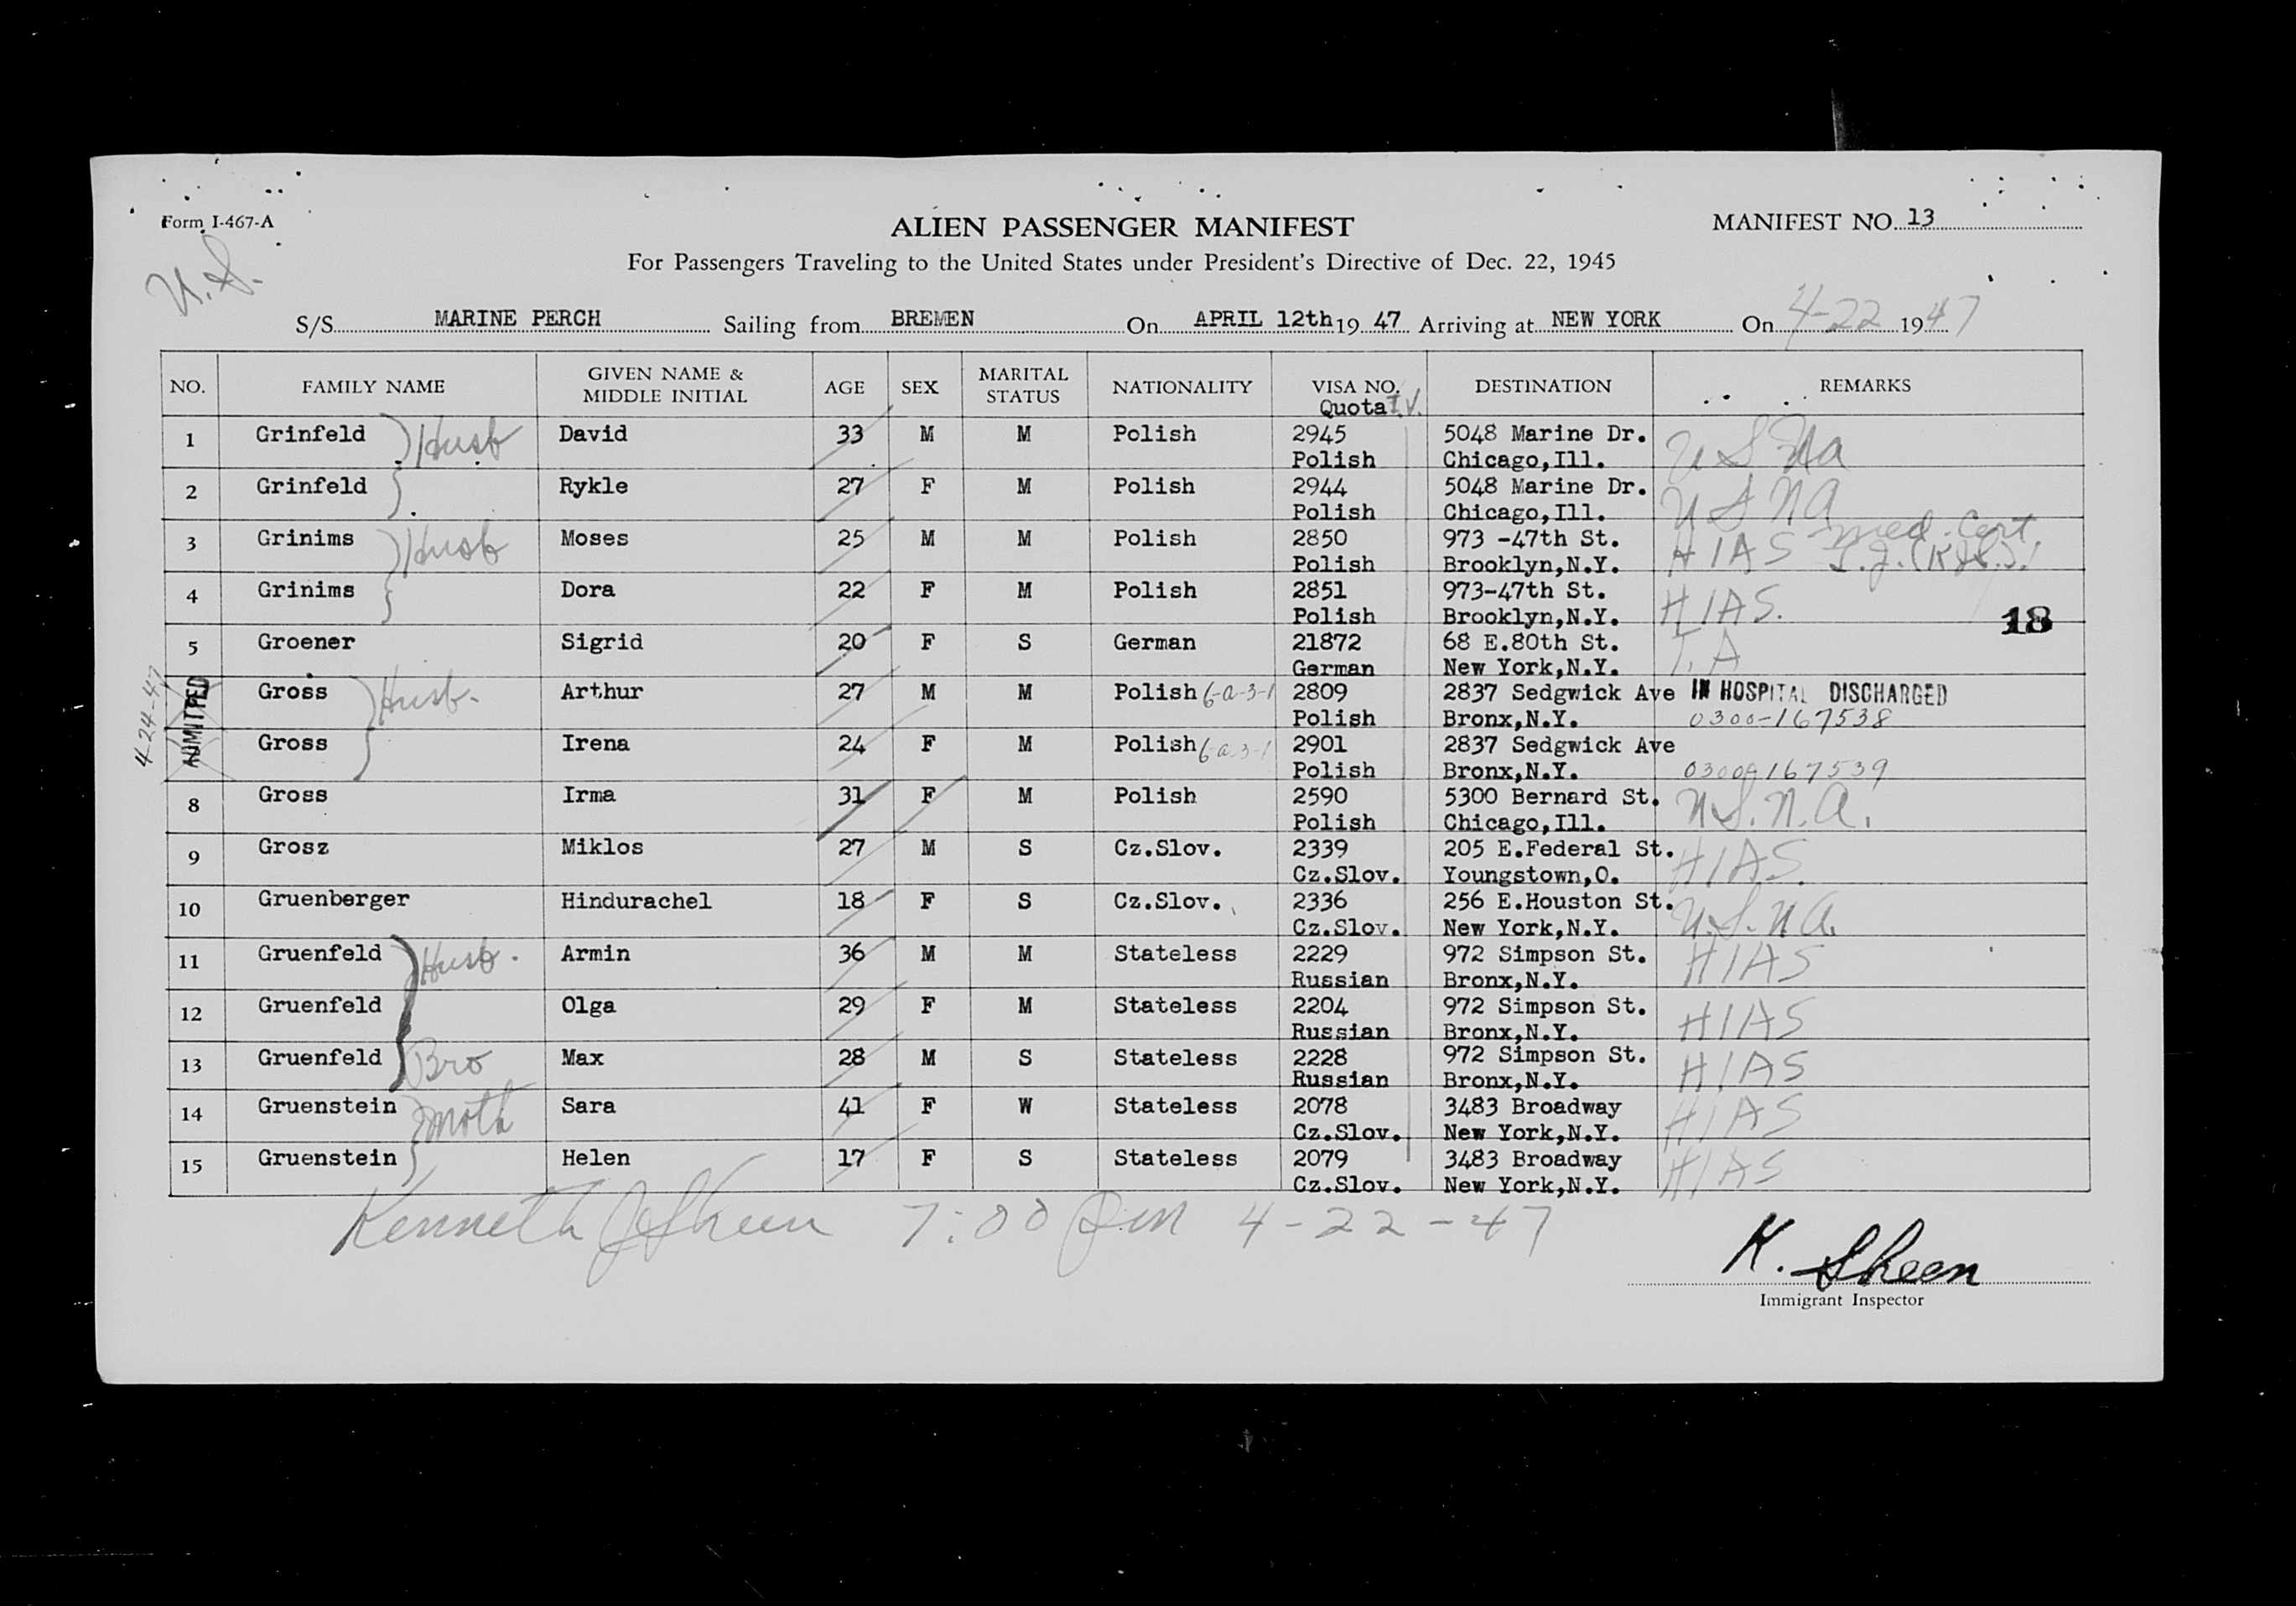 Form I-467-A
ALIEN PASSENGER MANIFEST
MANIFEST NO. 13
For Passengers Traveling to the United States under President's Directive of Dec. 22, 1945
U.S.
S/S MARINE PERCH Sailing from BREMEN On APRIL 12th 19 47 Arriving at NEW YORK On 4-22 1947
NO. FAMILY NAME GIVEN NAME & MIDDLE INITIAL AGE SEX MARITAL STATUS NATIONALITY VISA NO. Quota I.V. DESTINATION REMARKS
1 Grinfeld Husb David 33 M M Polish 2945 5048 Marine Dr. U S Na
Polish Chicago,Ill.
2 Grinfeld Rykle 27 F M Polish 2944 5048 Marine Dr. U S N A
Polish Chicago,Ill.
3 Grinims Husb Moses 25 M M Polish 2850 973 -47th St. HIAS med. Cert.
Polish Brooklyn,N.Y.
4 Grinims Dora 22 F M Polish 2851 973-47th St. HIAS.
Polish Brooklyn,N.Y. 18
5 Groener Sigrid 20 F S German 21872 68 E.80th St.
German New York,N.Y.
4-24-47 ADMITTED
Gross Husb. Arthur 27 M M Polish 6-a-3-1 2809 2837 Sedgwick Ave IN HOSPITAL DISCHARGED
Polish Bronx,N.Y. 0300-167538
Gross Irena 24 F M Polish 6-a-3-1 2901 2837 Sedgwick Ave
Polish Bronx,N.Y. 0300-167539
8 Gross Irma 31 F M Polish 2590 5300 Bernard St. U.S.N.A.
Polish Chicago,Ill.
9 Grosz Miklos 27 M S Cz.Slov. 2339 205 E.Federal St. HIAS.
Cz.Slov. Youngstown,O.
10 Gruenberger Hindurachel 18 F S Cz.Slov. 2336 256 E.Houston St. U.S.N.A.
Cz.Slov. New York,N.Y.
11 Gruenfeld Husb. Armin 36 M M Stateless 2229 972 Simpson St. HIAS
Russian Bronx,N.Y.
12 Gruenfeld Olga 29 F M Stateless 2204 972 Simpson St. HIAS
Russian Bronx,N.Y.
13 Gruenfeld Bro Max 28 M S Stateless 2228 972 Simpson St. HIAS
Russian Bronx,N.Y.
14 Gruenstein Moth Sara 41 F W Stateless 2078 3483 Broadway HIAS
Cz.Slov. New York,N.Y.
15 Gruenstein Helen 17 F S Stateless 2079 3483 Broadway HIAS
Cz.Slov. New York,N.Y.
Kenneth J Sheen 7:00 pm 4-22-47
K. Sheen
Immigrant Inspector